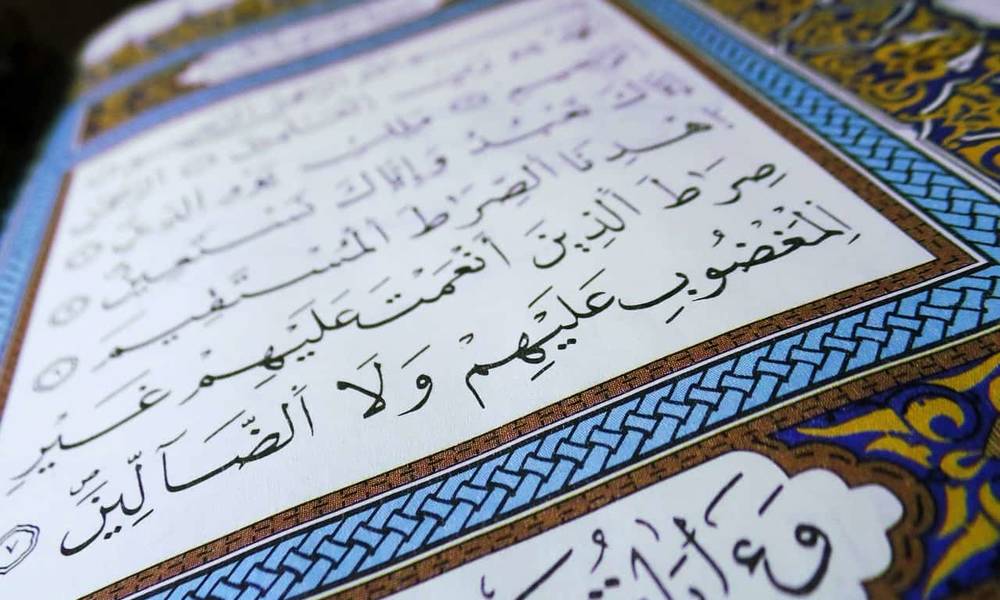 مَٰلِكِ يَوْمِ الدِّينِ
إِيَّاكَ نَعْبُدُ وَإِيَّاكَ نَسْتَعِينُ
اهْدِنَا الصِّرَاطَ الْمُسْتَقِيمَ ٦
صِرَاطَ الَّذِينَ أَنْعَمْتَ عَلَيْهِمْ غَيْرِ
الْمَغْضُوبِ عَلَيْهِمْ وَلَا الضَّآلِّينَ ٧